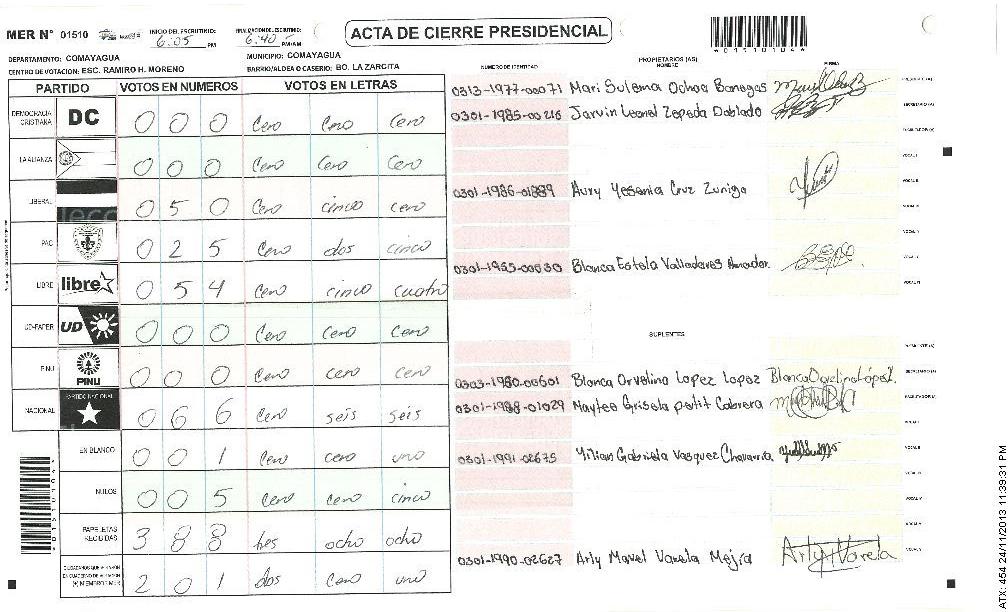 MER N° 01510
INICIO DEL ESCRUTINIO: 6:05 PM
FINALIZACION DEL ESCRUTINIO: 6:40 PM/AM
ACTA DE CIERRE PRESIDENCIAL
DEPARTAMENTO: COMAYAGUA
MUNICIPIO: COMAYAGUA
CENTRO DE VOTACION: ESC. RAMIRO H. MORENO
BARRIO/ALDEA O CASERIO: BO. LA ZARCITA
PARTIDO VOTOS EN NUMEROS VOTOS EN LETRAS
DEMOCRACIA CRISTIANA DC 0 0 0 Cero Cero Cero
LA ALIANZA 0 0 0 Cero Cero Cero
LIBERAL 0 5 0 Cero cinco cero
PAC 0 2 5 Cero dos cinco
LIBRE libre 0 5 4 Cero cinco cuatro
UD-FAPER UD 0 0 0 Cero Cero Cero
PINU PINU 0 0 0 Cero Cero cero
NACIONAL PARTIDO NACIONAL 0 6 6 Cero seis seis
EN BLANCO 0 0 1 Cero cero uno
NULOS 0 0 5 Cero Cero cinco
PAPELETAS RECIBIDAS 3 8 8 tres ocho ocho
2 0 1 dos Cero uno
PROPIETARIOS (AS)
NUMERO DE IDENTIDAD NOMBRE FIRMA
0313-1977-00071 Mari Sulema Ochoa Banegas
0301-1985-00216 Jarvin Leonel Zepeda Doblado
0301-1986-01889 Aury Yesenia Cruz Zuniga
0301-1955-00630 Blanca Estela Valladares Amador
SUPLENTES
0303-1980-00601 Blanca Orvelina Lopez Lopez
0301-1988-01029 Maytee Grisela petit Cabrera
0301-1991-02675 Yilian Gabriela Vasquez Chavarria
0301-1990-02627 Arly Marel Varela Mejia Arly Varela
ATX: 454 24/11/2013 11:39:31 PM